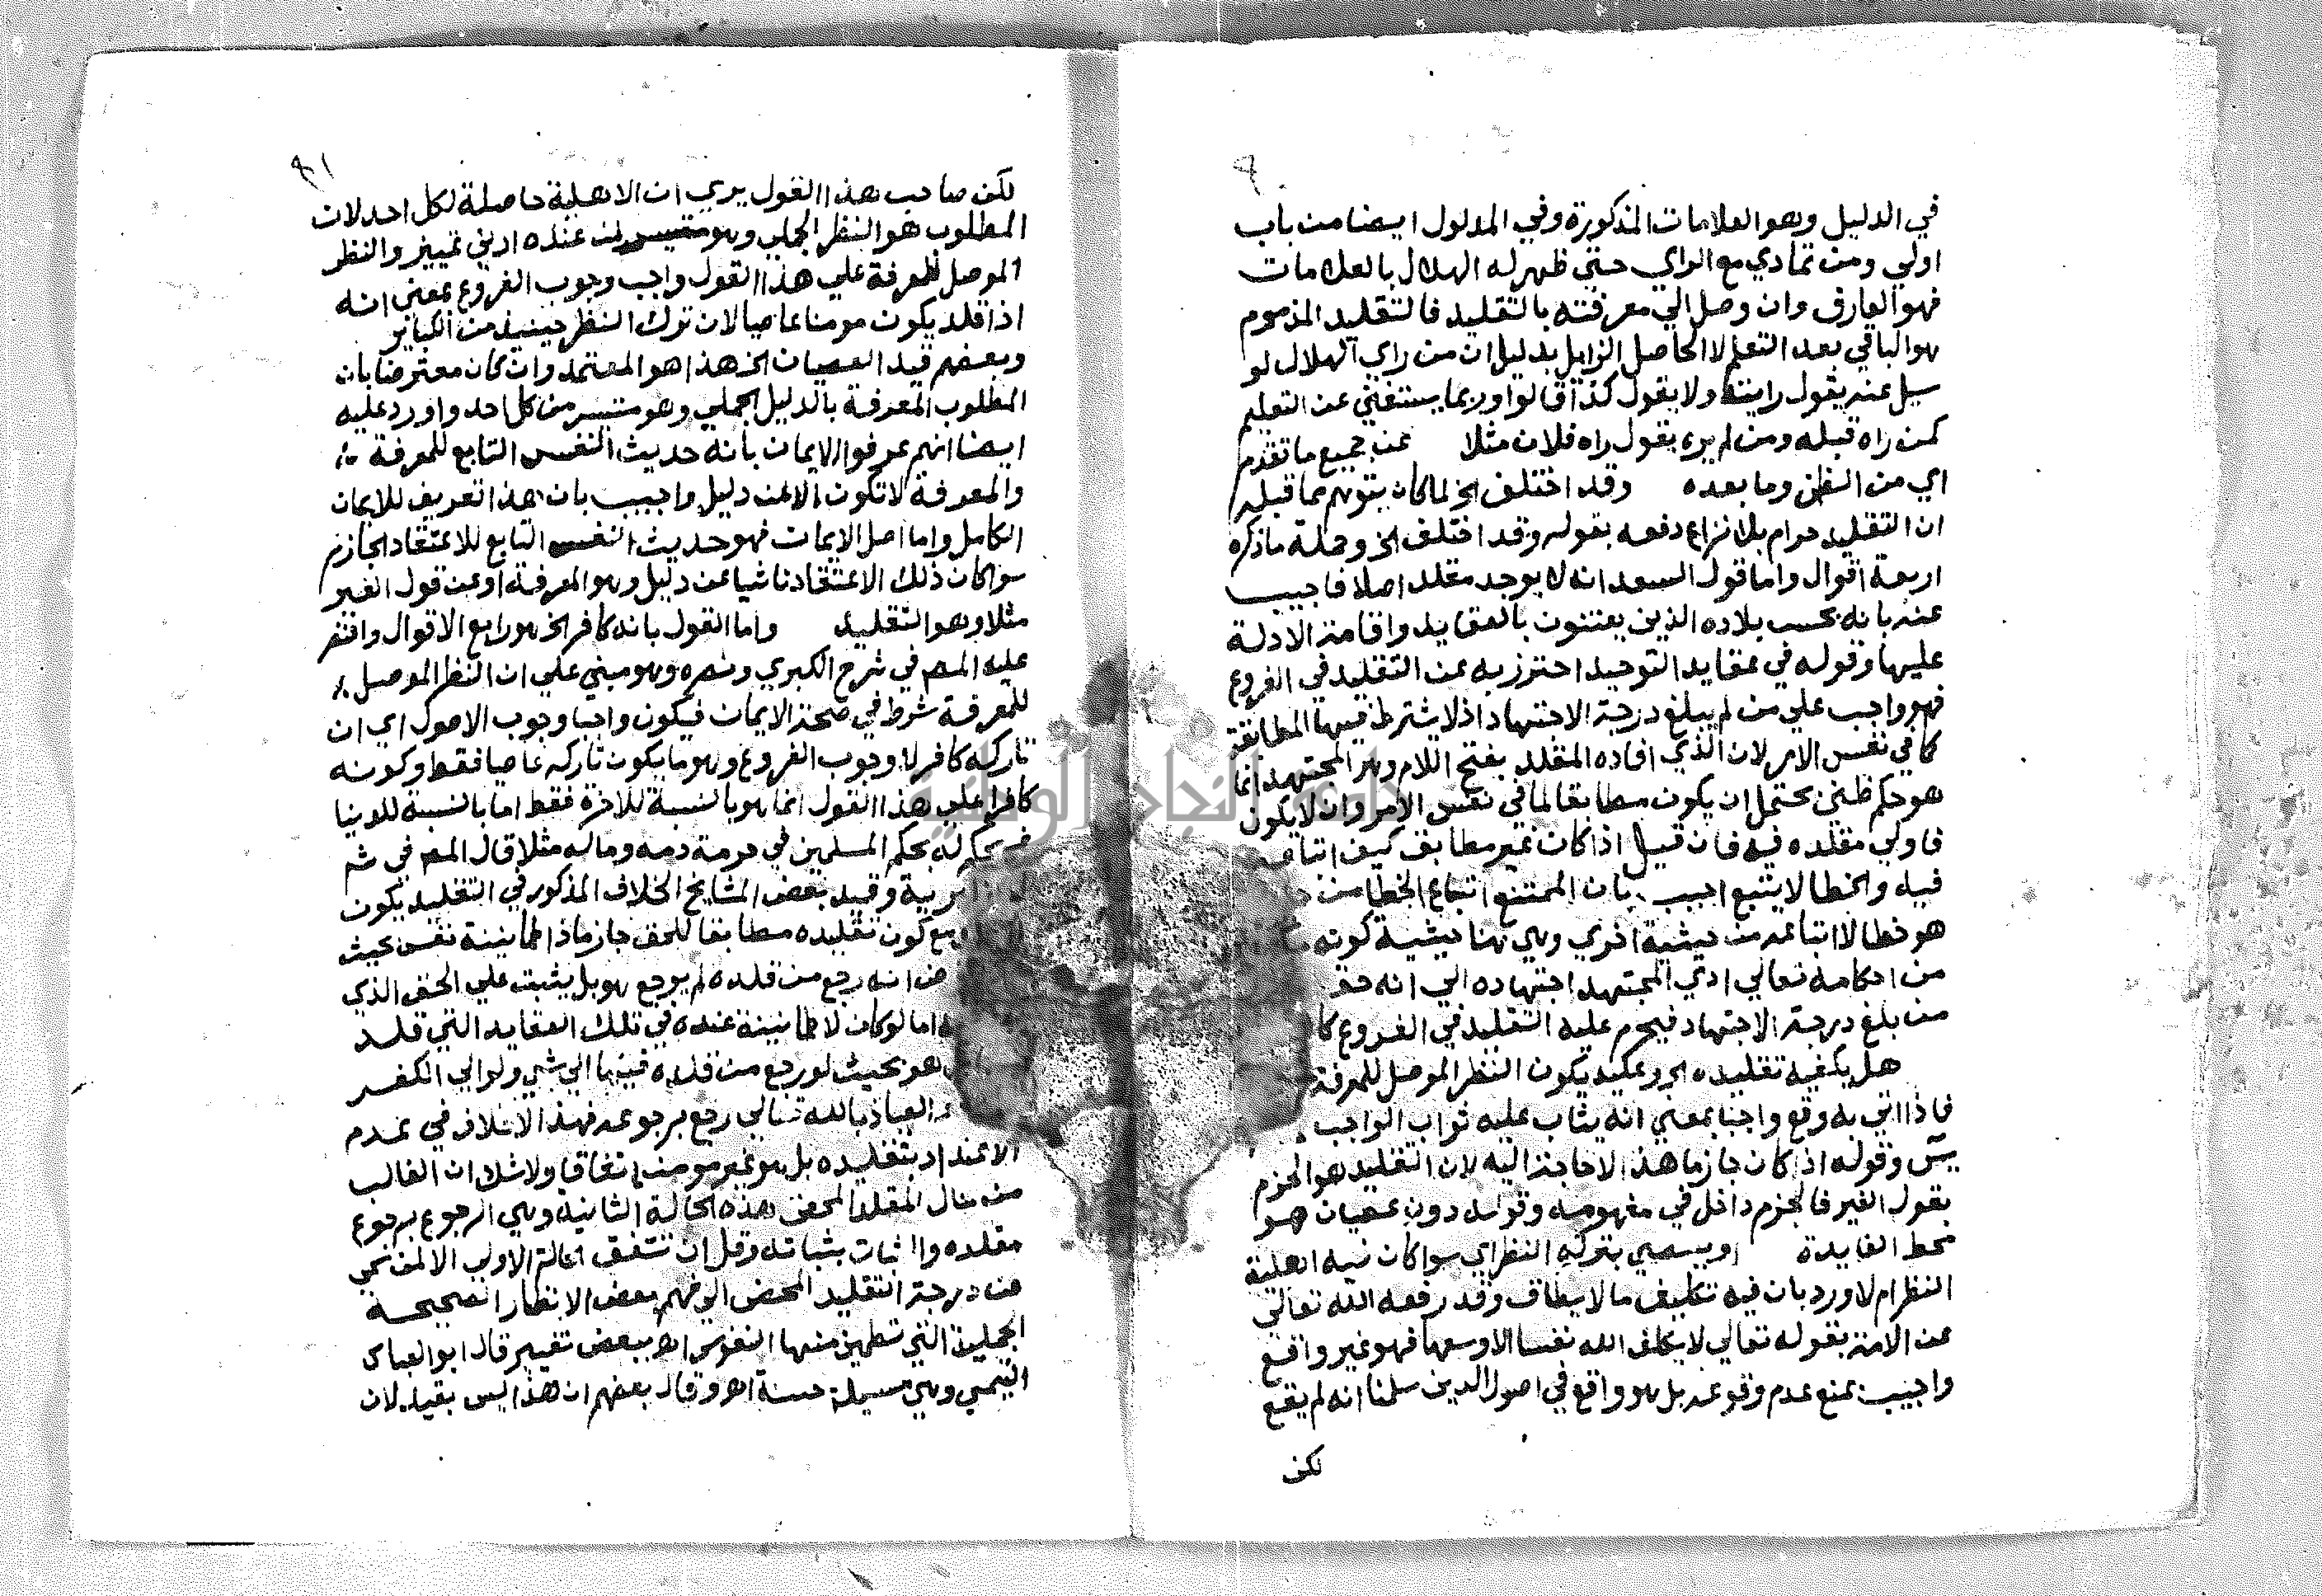 في الدليل وهو العلامات المذكورة وفي المدلول ايضا من باب
اولي ومن تمادي مع الراي حتي ظهر له الهلال بالعلامات
فهو العارف وان وصل الي معرفته بالتقليد فالتقليد المذموم
هو الباقي بعد التعلم لا الحاصل الزايل بدليل ان من راي الهلال لو
سيل عنه يقول رايته ولا يقول كذا قالوا وربما يستغني عن التعليم
كمن راه قبله ومن لم يره يقول راه فلان مثلا عن جميع ما تقدم
اي من الظن وما بعده وقد اختلف الخ لما كان يتوهم مما قبله
ان التقليد حرام بلا نزاع دفعه بقوله وقد اختلف الخ وجملة ما ذكره
اربعة اقوال واما قول السعد انه لا يوجد مقلد اصلا فاجيب
عنه بانه بحسب بلاده الذين يعتنون بالعقايد واقامة الادلة
عليها وقوله في عقايد التوحيد احترز به عن التقليد في الفروع
فهو واجب علي من لم يبلغ درجة الاجتهاد اذ لا يشترط فيها المطابقة
لما في نفس الامر لان الذي افاده المقلد بفتح اللام وهو المجتهد انما
هو حكم ظني يحتمل ان يكون مطابقا لما في نفس الامر وان لا يكون
فاولي مقلده فيه فان قيل اذا كان غير مطابق كيف
فيه والخطا لا يتبع اجيب بان الممتنع اتباع الخطا من
هو خطا لا اتباعه من حيثية اخري وهي هنا حيثية كونه
من احكامه تعالي ادي المجتهد اجتهاده الي انه حق
من بلغ درجة الاجتهاد فيحرم عليه التقليد في الفروع
هل يكفيه تقليده الخ وعليه يكون النظر الموصل للمعرفة
فاذا اتي به وقع واجبا بمعني انه يثاب عليه ثواب الواجب
يس وقوله اذا كان جازما هذا لا حاجة اليه لان التقليد هو الجزم
بقول الغير فالجزم داخل في مفهومه وقوله دون عصيان هو
محط الفايدة او يعصي بتركه النظر اي سوا كان فيه اهلية
النظر ام لا ورد بان فيه تكليف ما لا يطاق وقد رفعه الله تعالي
عن الامة بقوله تعالي لا يكلف الله نفسا الا وسعها فهو غير واقع
واجيب بمنع عدم وقوعه بل هو واقع في اصول الدين سلمنا انه لم يقع
لكن
لكن صاحب هذا القول يري ان الاهلية حاصلة لكل احد لان
المطلوب هو النظر الجملي وهو متيسر لمن عنده ادني تمييز والنظر
الموصل للمعرفة علي هذا القول واجب وجوب الفروع بمعني انه
اذا قلد يكون مومنا عاصيا لان ترك النظر حينيذ من الكباير
وبعضهم قيد العصيان الخ هذا هو المعتمد وان كان معترضا بان
المطلوب المعرفة بالدليل الجملي وهو متيسر من كل احد واورد عليه
ايضا انهم عرفوا الايمان بانه حديث النفس التابع للمعرفة
والمعرفة لا تكون الا عن دليل واجيب بان هذا تعريف للايمان
الكامل واما اصل الايمان فهو حديث النفس التابع للاعتقاد الجازم
سوا كان ذلك الاعتقاد ناشيا عن دليل وهو المعرفة او عن قول الغير
مثلا وهو التقليد واما القول بانه كافر الخ هو رابع الاقوال واقتصر
عليه المصـ في شرح الكبري ونصره وهو مبني علي ان النظر الموصل
للمعرفة شرط في صحة الايمان فيكون واجبا وجوب الاصول اي ان
تاركه كافر لا وجوب الفروع وهو ما يكون تاركه عاصيا فقط وكونه
كافرا علي هذا القول انما هو بالنسبة للاخرة فقط اما بالنسبة للدنيا
فيحكم له بحكم المسلمين في حرمة دمه وماله مثلا قال المصـ في شر
وقيد بعض المشايخ الخلاف المذكور في التقليد يكون
مع كون تقليده مطابقا للحق جازما ذا طمانينة نفس بحيث
انه رجع من قلده لم يرجع هو بل يثبت علي الحق الذي
اما لو كان لا طمانينة عنده في تلك العقايد التي قلد
هو بحيث لو رجع من قلده فيها الي شي ولو الي الكفر
العياذ بالله تعالي رجع برجوعه فهذا لا خلاف في عدم
الاعتداد بتقليده بل هو غير مومن اتفاقا ولا شك ان الغالب
من حال المقلد المحض هذه الحالة الثانية وهي الرجوع برجوع
مقلده والثبات بثباته وقل ان تتفق الحالة الاولي الا لمن نحي
عن درجة التقليد المحض الي فهم بعض الانظار الصحيحة
الجملية التي تطمين منها النفوس اهـ ببعض تغيير قال ابو العباس
اليحيي وهي مسيلة حسنة اهـ وقال بعضهم ان هذا ليس بقيد لان